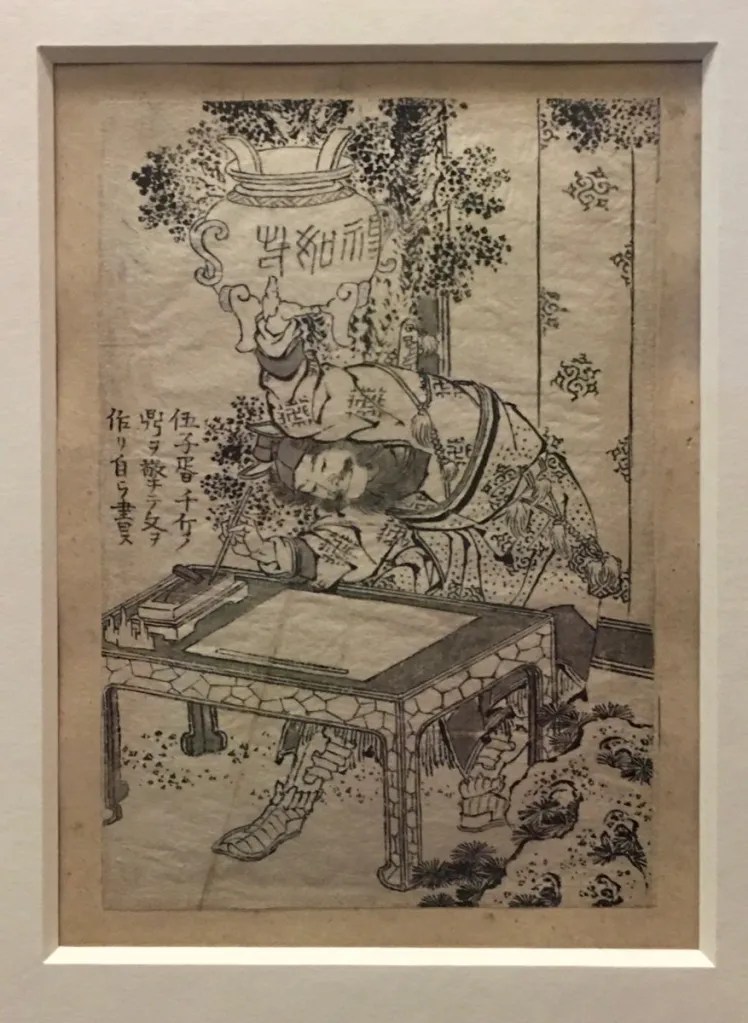 伍子胥千斤ノ
鼎ヲ擎テ文ヲ
作リ自ラ書ス